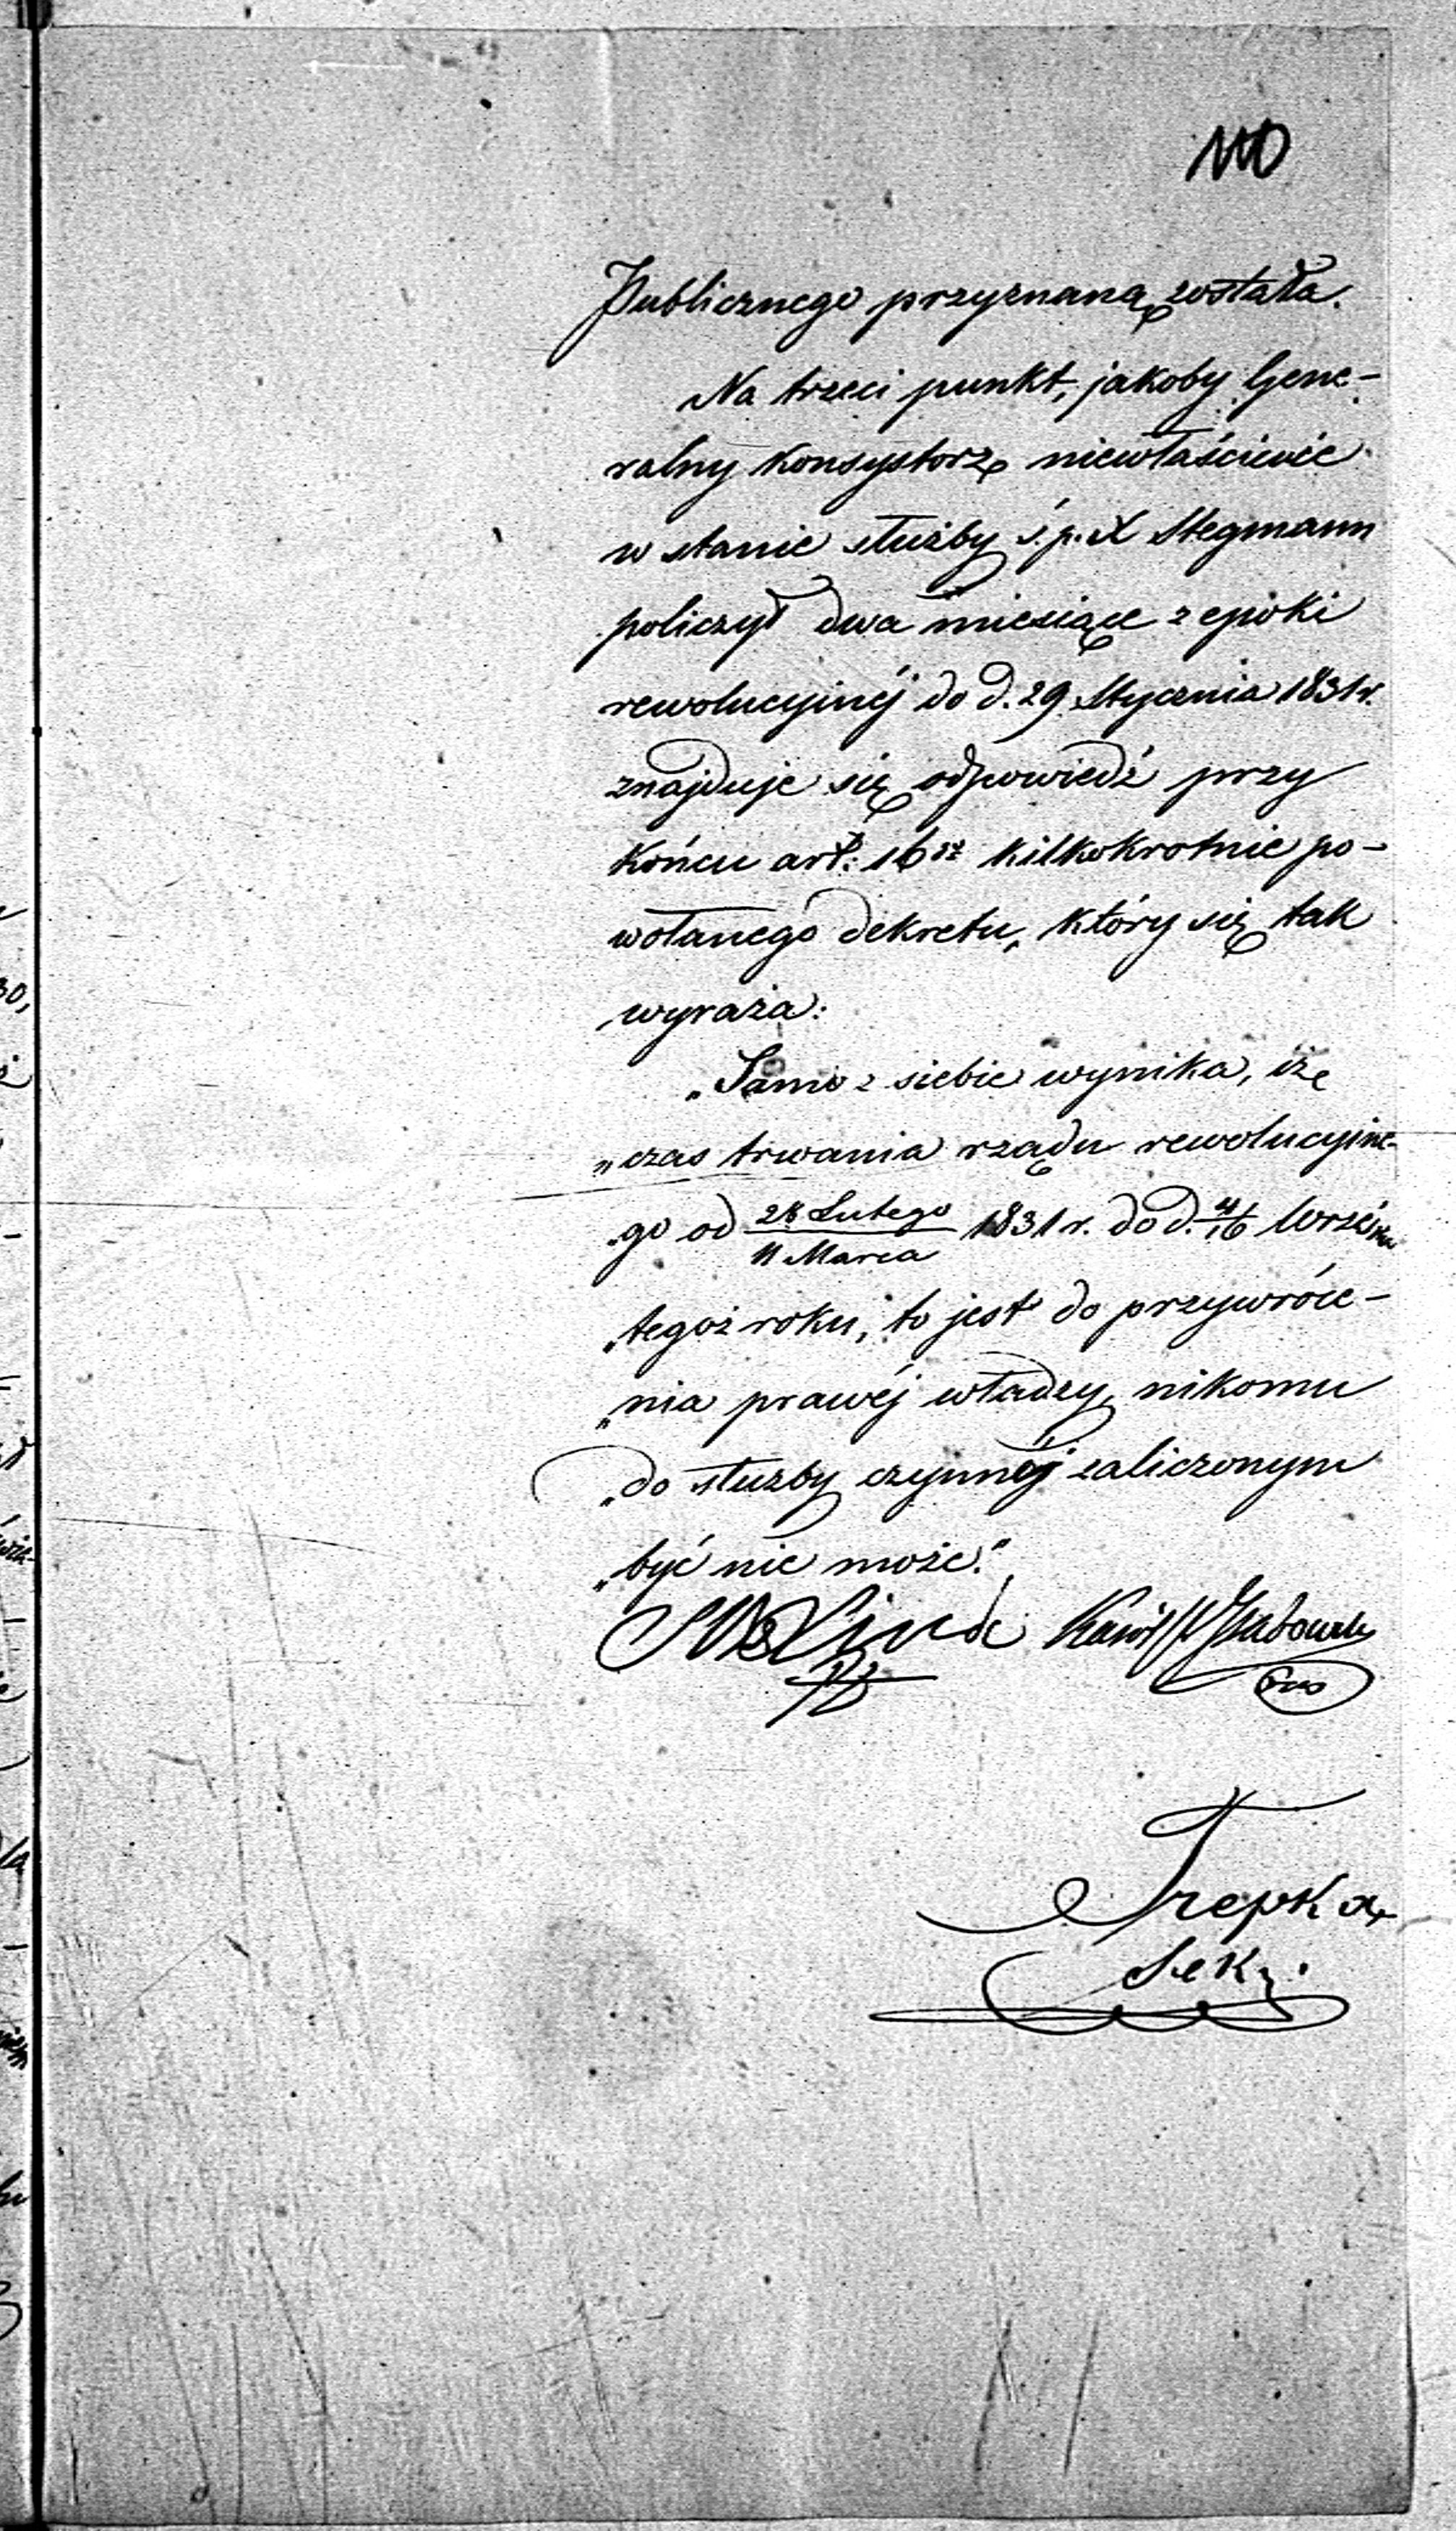 110
Publicznego przyznaną została.
Na trzeci punkt, jakoby Gene-
ralny Konsystorz niewłaściwie
w stanie służby ś.p. X Stegmann
policzył dwa miesiące z epoki
rewolucyjnéj do d. 29 Stycznia 1831 r.
znajduje się odpowiedź przy
Końcu art: 16 kilkokrotnie po-
wołanego dekretu, który się tak
wyraża:
„Samo z siebie wynika, iże
„czas trwania rządu rewolucyjne-
„go od 28 Lutego / 11 Marca 1831 r. do d. 4/16 Wrześn
„tegoż roku, to jest do przywróce-
„nia prawéj władzy, nikomu
„do służby czynnéj zaliczonym
„być nie może."
Linde Karol
Trepka
Sek.